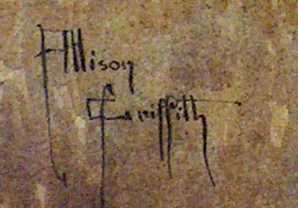 Allison
Griffith